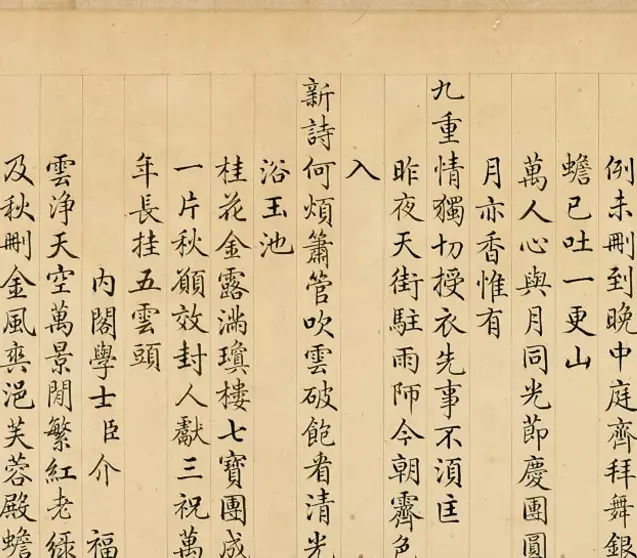 例未刪到晚中庭齊拜舞銀
蟾已吐一更山
萬人心與月同光節慶團圓
月亦香惟有
九重情獨切授衣先事不須匡
昨夜天街駐雨師今朝霽色
入
新詩何煩簫管吹雲破飽看清光
浴玉池
桂花金露滿瓊樓七寶團成
一片秋願效封人獻三祝萬
年長挂五雲頭
内閣學士臣介福
雲淨天空萬景閒繁紅老綠
及秋刪金風奕浥芙蓉殿蟾